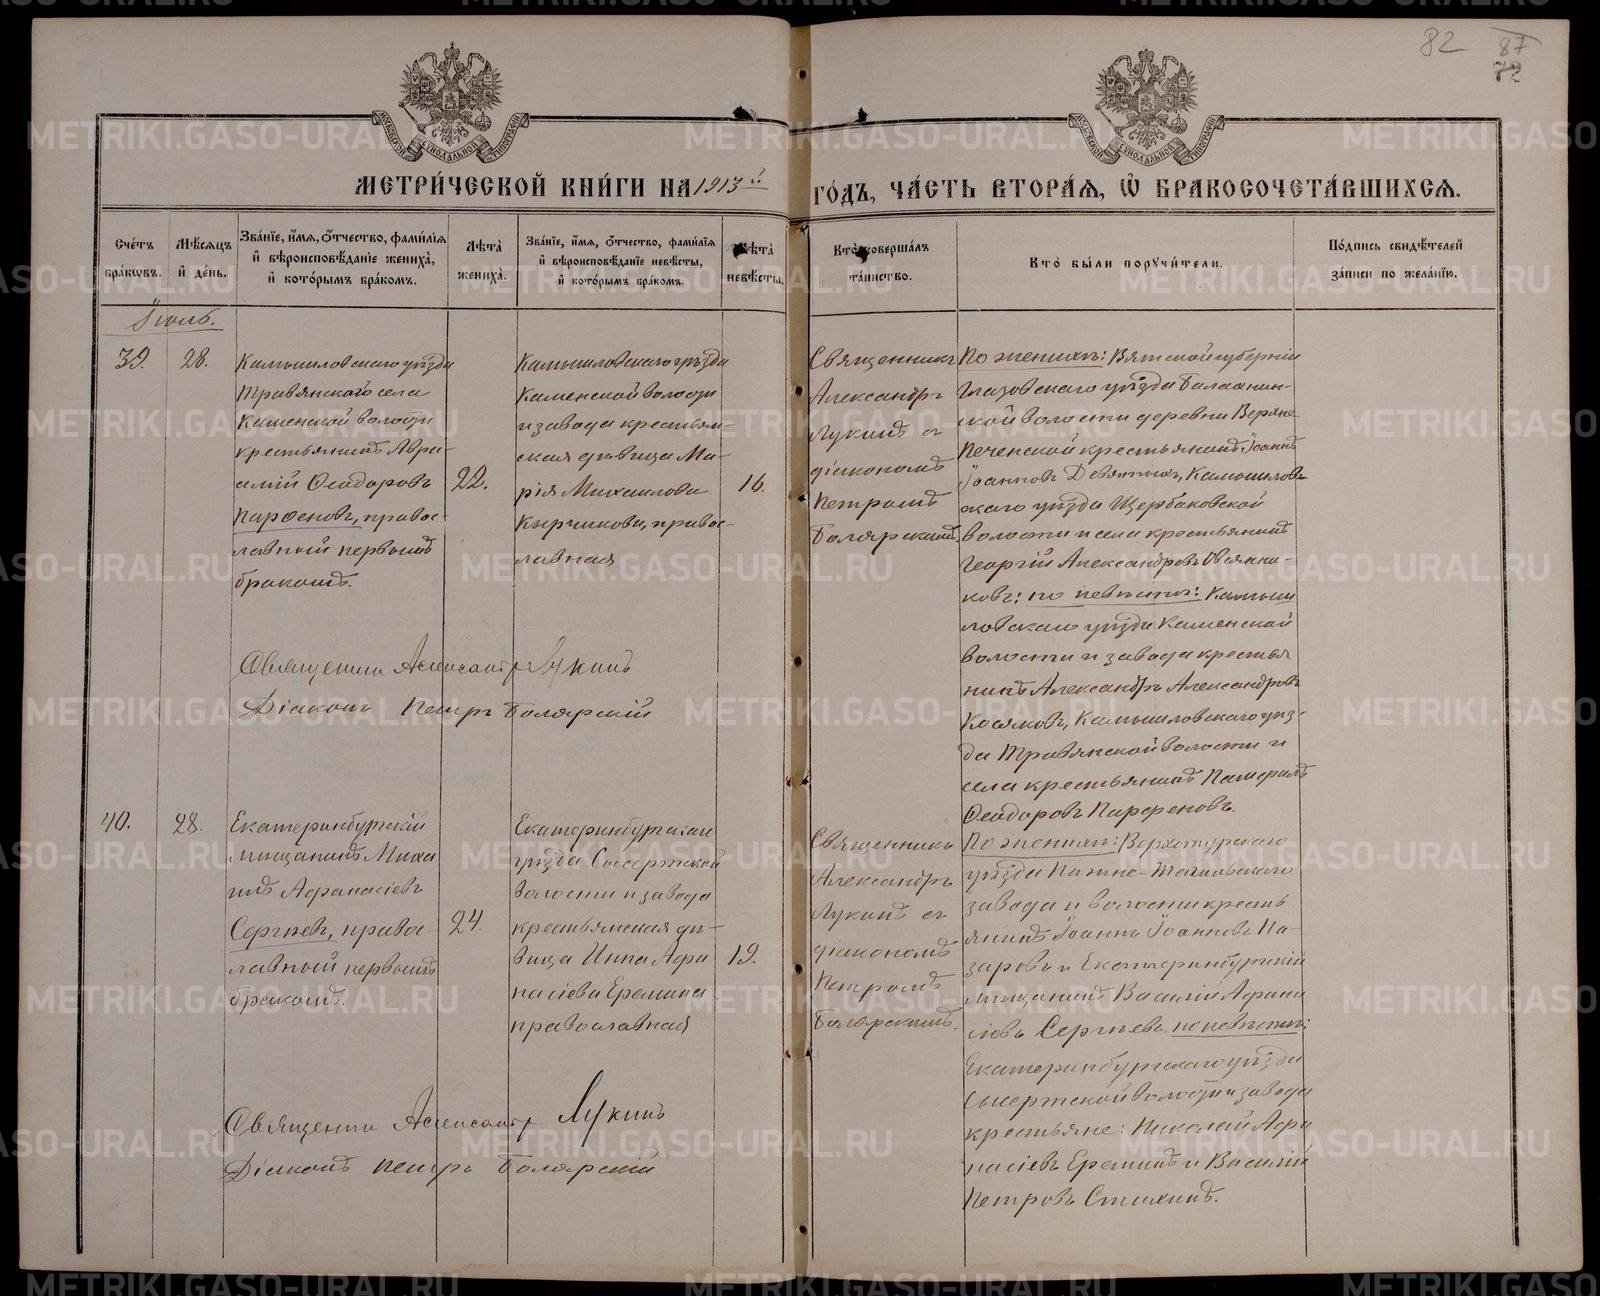 82
87
72
МЕТРИ́ЧЕСКОЙ КНИ́ГИ НА 1913 й
ГО́ДЪ, ЧА́СТЬ ВТОРА́Я, Ѡ БРАКОСОЧЕТА́ВШИХСЯ.
Сче́тъ бра́ковъ.
Мѣ́сяцъ и де́нь.
Зва́нїе, и́мя, ѻ́тчество, фами́лїя и вѣроисповѣ́данїе жениха̀, и кото́рымъ бра́комъ.
Лѣ́та жениха̀.
Зва́нїе, и́мя, ѻ́тчество, фами́лїя и вѣроисповѣ́данїе невѣ́сты, и кото́рымъ бра́комъ.
Лѣ́та невѣ́сты.
Кто̀ соверша́лъ та́инство.
Кто̀ бы́ли поручи́тели.
По́дпись свидѣ́телей за́писи по жела́нїю.
Іюль.
39.
28.
Камышловскаго уѣзда
Травянскаго села
Каменской волости
крестьянинъ Авра-
амій Ѳеодоровъ
Парѳеновъ, правос-
лавный первымъ
бракомъ.
22.
Камышловскаго уѣзда
Каменской волости
и завода крестьян-
ская дѣвица Ма-
рія Михаилова
Кырчикова, правос-
лавная
16.
Священникъ
Александръ
Лукинъ съ
діакономъ
Петромъ
Болярскимъ.
По женихѣ: Вятской губерніи
Глазовскаго уѣзда Балезин-
ской волости деревни Верхне
Печенской крестьянинъ Іоаннъ
Іоанновъ Девятыхъ, Камышлов-
скаго уѣзда Щербаковской
волости и села крестьянинъ
Георгій Александровъ Овсянни-
ковъ; по невѣстѣ: Камыш
ловскаго уѣзда Каменской
волости и завода крестья
нинъ Александръ Александровъ
Косяковъ, Камышловскаго уѣз-
да Травянской волости и
села крестьянинъ
Ѳеодоровъ Парфеновъ.
Священникъ Александръ Лукинъ
Діаконъ Петръ Болярскій
40.
28.
Екатеринбургскій
мѣщанинъ Миха
илъ Афанасіевъ
Сергѣевъ, правос-
лавный первымъ
бракомъ.
24.
Екатеринбургскаго
уѣзда Сысертской
волости и завода
крестьянская дѣ-
вица Анна Афа
насіева Еремина
православная
19.
Священникъ
Александръ
Лукинъ съ
діакономъ
Петромъ
Болярскимъ.
По женихѣ: Верхотурскаго
уѣзда Нижне-Тагильскаго
завода и волости кресть
янинъ Іоаннъ Іоанновъ На-
заровъ и Екатеринбургскій
мѣщанинъ Василій Афана
сіевъ Сергѣевъ. по невѣстѣ:
Екатеринбургскаго уѣзда
Сысертской волости и завода
крестьяне: Николай Афа
насіевъ Ереминъ и Василій
Петровъ Стихинъ.
Священникъ Александръ Лукинъ
Діаконъ Петръ Болярскій
METRIKI.GASO-URAL.RU